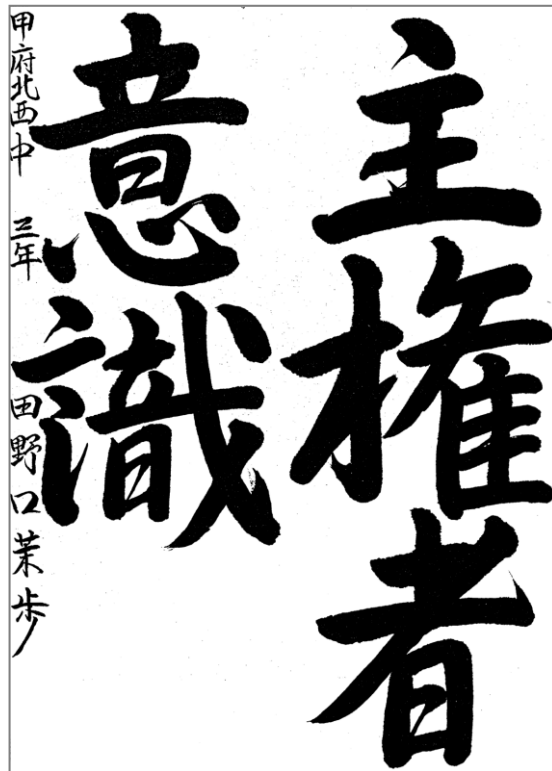 主権者
意識
甲府北西中 三年 田野口茉歩